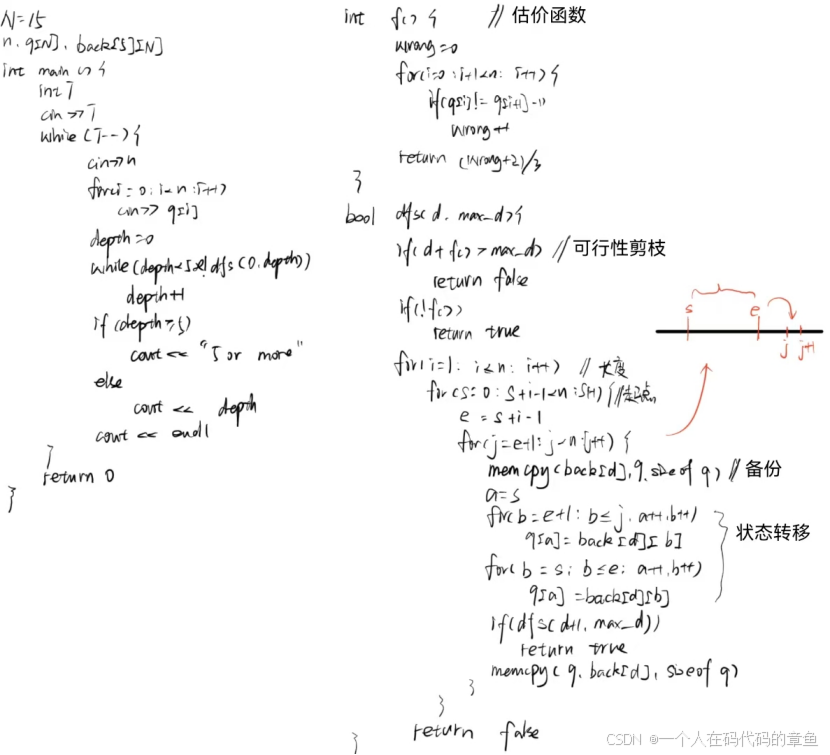 N=15
n, q[N], back[5][N]
int main () {
int T
cin>>T
while (T--) {
cin>>n
for(i=0; i<n; i++)
cin>> q[i]
depth=0
while(depth<5&&!dfs(0,depth))
depth+1
if (depth≥5)
cout << "5 or more"
else
cout << depth
cout << endl
}
return 0
}
int f() { // 估价函数
wrong=0
for(i=0; i+1<n; i++) {
if(q[i]!=q[i+1]-1)
wrong++
return (wrong+2)/3
}
bool dfs(d, max_d) {
if(d+f()>max_d) // 可行性剪枝
return false
if(!f())
return true
for(i=1; i≤n; i++) // 长度
for(s=0; s+i-1<n; s++) { // 起点
e=s+i-1
for(j=e+1; j<n; j++) {
memcpy(back[d], q, sizeof q) // 备份
a=s
for(b=e+1; b≤j; a++,b++)
q[a]=back[d][b]
for(b=s; b≤e; a++,b++)
q[a]=back[d][b]
状态转移
if(dfs(d+1, max_d))
return true
memcpy(q, back[d], sizeof q)
}
}
return false
}
s e j j+1
CSDN @一个人在码代码的章鱼